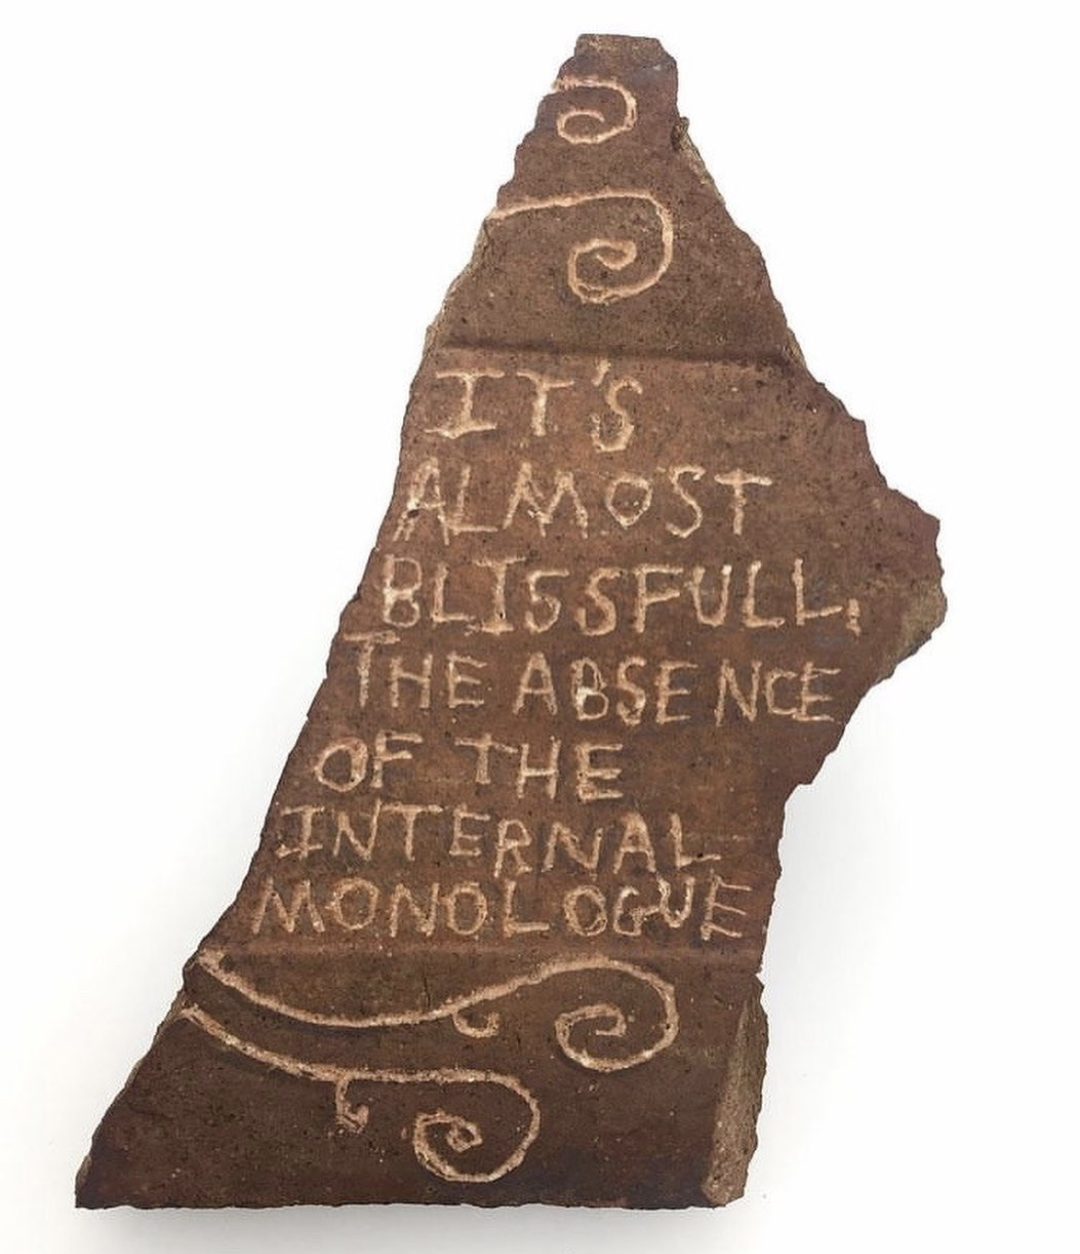 IT'S
ALMOST
BLISSFULL,
THE ABSENCE
OF THE
INTERNAL
MONOLOGUE